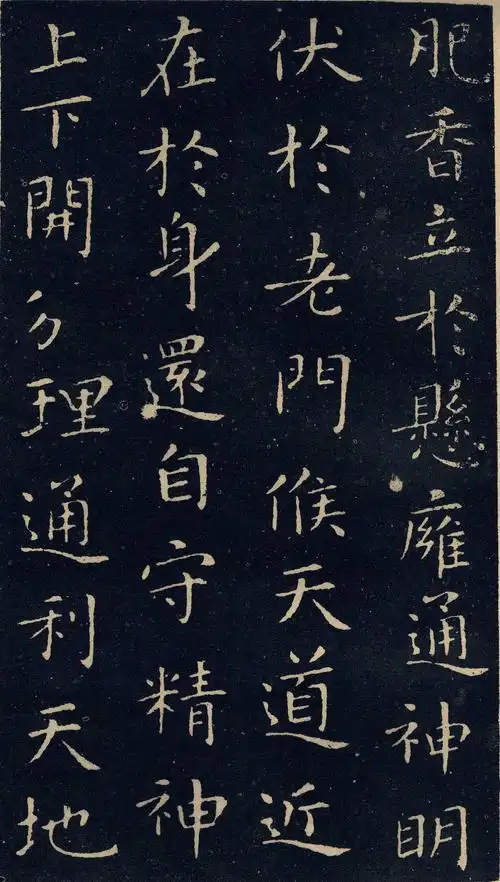 肥香立於懸雍通神明
伏於老門候天道近
在於身還自守精神
上下開分理通利天地